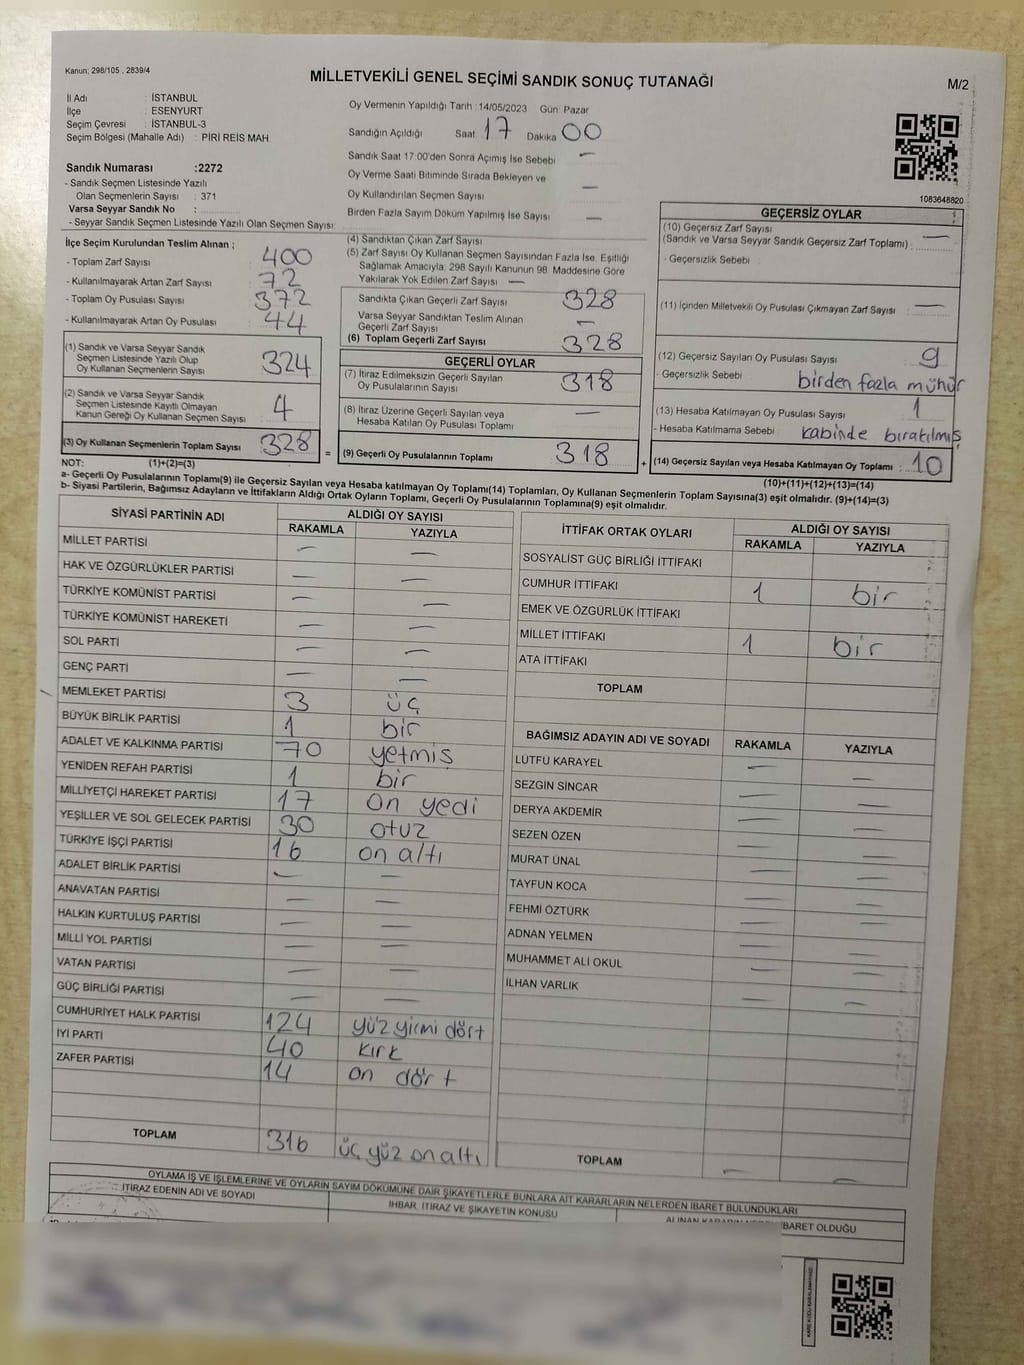 Kanun; 298/105 , 2839/4
MİLLETVEKİLİ GENEL SEÇİMİ SANDIK SONUÇ TUTANAĞI
M/2
İl Adı : İSTANBUL
İlçe : ESENYURT
Seçim Çevresi : İSTANBUL-3
Seçim Bölgesi (Mahalle Adı) : PİRİ REİS MAH.
Sandık Numarası :2272
- Sandık Seçmen Listesinde Yazılı
Olan Seçmenlerin Sayısı : 371
Varsa Seyyar Sandık No :
- Seyyar Sandık Seçmen Listesinde Yazılı Olan Seçmen Sayısı:
Oy Vermenin Yapıldığı Tarih :14/05/2023 Gün: Pazar
Sandığın Açıldığı Saat 17 Dakika 00
Sandık Saat 17:00'den Sonra Açımış İse Sebebi —
Oy Verme Saati Bitiminde Sırada Bekleyen ve
Oy Kullandırılan Seçmen Sayısı —
Birden Fazla Sayım Döküm Yapılmış İse Sayısı —
1083648820
İlçe Seçim Kurulundan Teslim Alınan ;
- Toplam Zarf Sayısı : 400
- Kullanılmayarak Artan Zarf Sayısı : 72
- Toplam Oy Pusulası Sayısı : 372
- Kullanılmayarak Artan Oy Pusulası : 44
(1) Sandık ve Varsa Seyyar Sandık
Seçmen Listesinde Yazılı Olup
Oy Kullanan Seçmenlerin Sayısı 324
(2) Sandık ve Varsa Seyyar Sandık
Seçmen Listesinde Kayıtlı Olmayan
Kanun Gereği Oy Kullanan Seçmen Sayısı 4
(3) Oy Kullanan Seçmenlerin Toplam Sayısı 328 =
(1)+(2)=(3)
(4) Sandıktan Çıkan Zarf Sayısı
(5) Zarf Sayısı Oy Kullanan Seçmen Sayısından Fazla İse, Eşitliği
Sağlamak Amacıyla, 298 Sayılı Kanunun 98. Maddesine Göre
Yakılarak Yok Edilen Zarf Sayısı —
Sandıkta Çıkan Geçerli Zarf Sayısı 328
Varsa Seyyar Sandıktan Teslim Alınan
Geçerli Zarf Sayısı —
(6) Toplam Geçerli Zarf Sayısı 328
GEÇERLİ OYLAR
(7) İtiraz Edilmeksizin Geçerli Sayılan
Oy Pusulalarının Sayısı 318
(8) İtiraz Üzerine Geçerli Sayılan veya
Hesaba Katılan Oy Pusulası Toplamı —
(9) Geçerli Oy Pusulalarının Toplamı 318 +
GEÇERSİZ OYLAR
(10) Geçersiz Zarf Sayısı
(Sandık ve Varsa Seyyar Sandık Geçersiz Zarf Toplamı) : —
- Geçersizlik Sebebi :
(11) İçinden Milletvekili Oy Pusulası Çıkmayan Zarf Sayısı : —
(12) Geçersiz Sayılan Oy Pusulası Sayısı : 9
- Geçersizlik Sebebi : birden fazla mühür
(13) Hesaba Katılmayan Oy Pusulası Sayısı : 1
- Hesaba Katılmama Sebebi : kabinde bırakılmış
(14) Geçersiz Sayılan veya Hesaba Katılmayan Oy Toplamı : 10
(10)+(11)+(12)+(13)=(14)
NOT:
a- Geçerli Oy Pusulalarının Toplamı(9) ile Geçersiz Sayılan veya Hesaba katılmayan Oy Toplamı(14) Toplamları, Oy Kullanan Seçmenlerin Toplam Sayısına(3) eşit olmalıdır. (9)+(14)=(3)
b- Siyasi Partilerin, Bağımsız Adayların ve İttifakların Aldığı Ortak Oyların Toplamı, Geçerli Oy Pusulalarının Toplamına(9) eşit olmalıdır.
SİYASİ PARTİNİN ADI ALDIĞI OY SAYISI
RAKAMLA YAZIYLA
MİLLET PARTİSİ — —
HAK VE ÖZGÜRLÜKLER PARTİSİ — —
TÜRKİYE KOMÜNİST PARTİSİ — —
TÜRKİYE KOMÜNİST HAREKETİ — —
SOL PARTİ — —
GENÇ PARTİ — —
MEMLEKET PARTİSİ 3 üç
BÜYÜK BİRLİK PARTİSİ 1 bir
ADALET VE KALKINMA PARTİSİ 70 yetmiş
YENİDEN REFAH PARTİSİ 1 bir
MİLLİYETÇİ HAREKET PARTİSİ 17 on yedi
YEŞİLLER VE SOL GELECEK PARTİSİ 30 otuz
TÜRKİYE İŞÇİ PARTİSİ 16 on altı
ADALET BİRLİK PARTİSİ — —
ANAVATAN PARTİSİ — —
HALKIN KURTULUŞ PARTİSİ — —
MİLLİ YOL PARTİSİ — —
VATAN PARTİSİ — —
GÜÇ BİRLİĞİ PARTİSİ — —
CUMHURİYET HALK PARTİSİ 124 yüz yirmi dört
İYİ PARTİ 40 kırk
ZAFER PARTİSİ 14 on dört
TOPLAM 316 üç yüz on altı
İTTİFAK ORTAK OYLARI ALDIĞI OY SAYISI
RAKAMLA YAZIYLA
SOSYALİST GÜÇ BİRLİĞİ İTTİFAKI
CUMHUR İTTİFAKI 1 bir
EMEK VE ÖZGÜRLÜK İTTİFAKI
MİLLET İTTİFAKI 1 bir
ATA İTTİFAKI
TOPLAM
BAĞIMSIZ ADAYIN ADI VE SOYADI RAKAMLA YAZIYLA
LÜTFÜ KARAYEL — —
SEZGİN SİNCAR — —
DERYA AKDEMİR — —
SEZEN ÖZEN — —
MURAT ÜNAL — —
TAYFUN KOCA — —
FEHMİ ÖZTÜRK — —
ADNAN YELMEN — —
MUHAMMET ALİ OKUL — —
İLHAN VARLIK — —
TOPLAM — —
OYLAMA İŞ VE İŞLEMLERİNE VE OYLARIN SAYIM DÖKÜMÜNE DAİR ŞİKAYETLERLE BUNLARA AİT KARARLARIN NELERDEN İBARET BULUNDUKLARI
İTİRAZ EDENİN ADI VE SOYADI İHBAR, İTİRAZ VE ŞİKAYETİN KONUSU BARET OLDUĞU